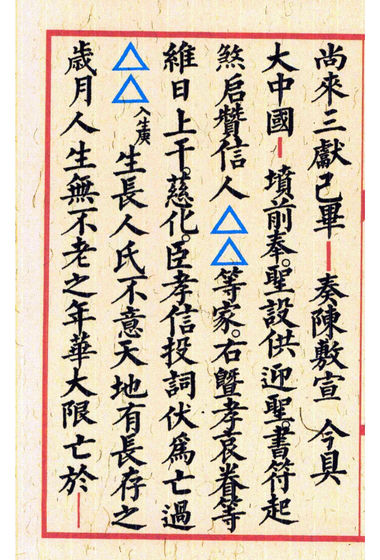 尚來三獻已畢 奏陳敷宣 今具
大中國 墳前奉。聖設供迎聖。書符起
煞启贊信人△△等家。右暨孝哀眷等
維日上干。慈化。臣孝信投詞伏為亡過
△△入生庚生長人氏不意天地有長存之
歲月人生無不老之年華大限亡於